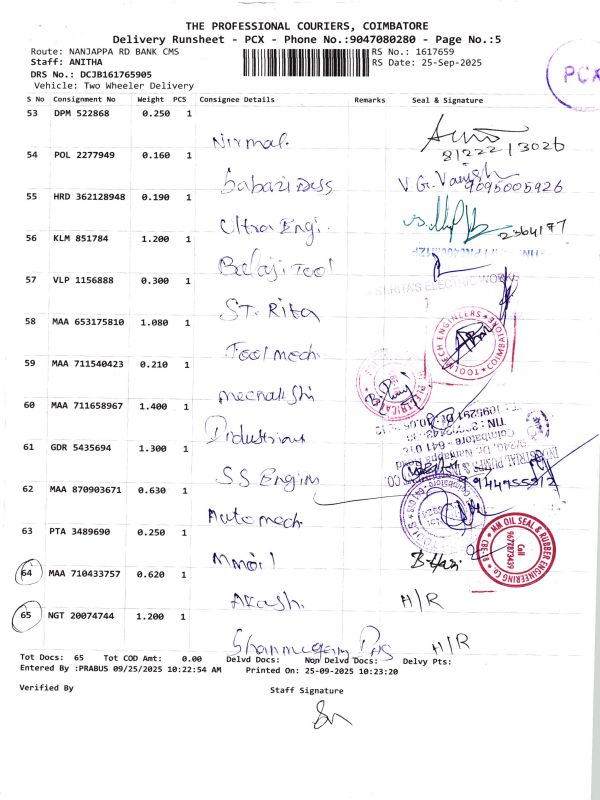 THE PROFESSIONAL COURIERS, COIMBATORE
Delivery Runsheet - PCX - Phone No.:9047080280 - Page No.:5
Route: NANJAPPA RD BANK CMS RS No.: 1617659
Staff: ANITHA RS Date: 25-Sep-2025
DRS No.: DCJB161765905
Vehicle: Two Wheeler Delivery
PCX
S No Consignment No Weight PCS Consignee Details Remarks Seal & Signature
53 DPM 522868 0.250 1
Nirmal. 8122213026
54 POL 2277949 0.160 1
Sabari 9095005926
55 HRD 362128948 0.190 1
Ultra Engi. 2364177
56 KLM 851784 1.200 1
Balaji Tool
57 VLP 1156888 0.300 1
ST. Rita ST.RITA'S ELECTRIC WORKS
58 MAA 653175810 1.080 1
Toolmech. TOOLMECH ENGINEERS COIMBATORE
59 MAA 711540423 0.210 1
meenakshi
60 MAA 711658967 1.400 1
Industrial
61 GDR 5435694 1.300 1
INDUSTRIAL PUMPS &
Dr. Nanjappa Road
Coimbatore - 641 018
SS Engim
62 MAA 870903671 0.630 1
Automech
63 PTA 3489690 0.250 1
mmoil B. Hari MM OIL SEAL & RUBBER ENGINEERING Co CBE-18 Cell 9677873439
64 MAA 710433757 0.620 1
Akash. H/R
65 NGT 20074744 1.200 1
Shanmugam H/R
Tot Docs: 65 Tot COD Amt: 0.00 Delvd Docs: Non Delvd Docs: Delvy Pts:
Entered By :PRABUS 09/25/2025 10:22:54 AM Printed On: 25-09-2025 10:23:20
Verified By Staff Signature